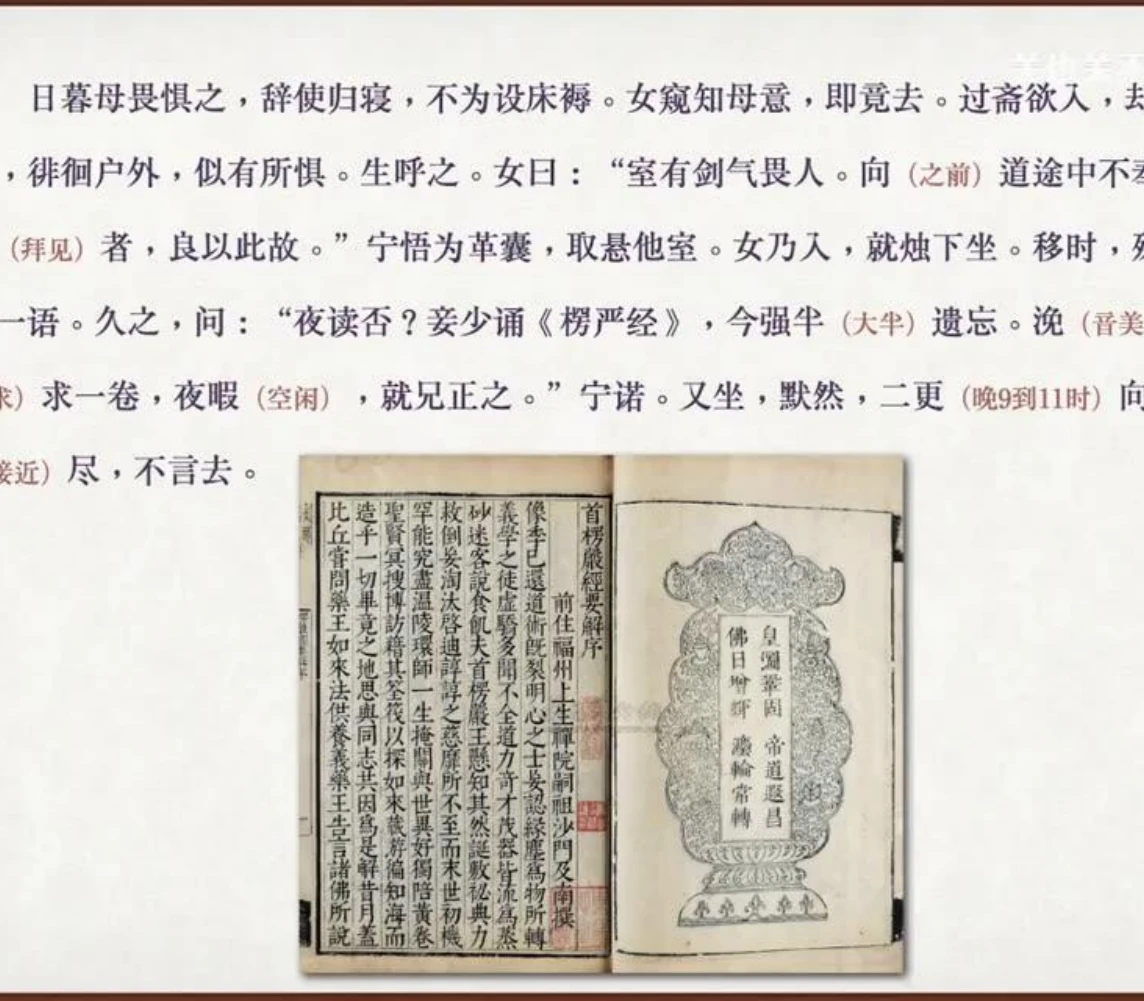 日暮母畏惧之，辞使归寝，不为设床褥。女窥知母意，即竟去。过斋欲入，
，徘徊户外，似有所惧。生呼之。女曰：“室有剑气畏人。向（之前）道途中不奉
（拜见）者，良以此故。”宁悟为革囊，取悬他室。女乃入，就烛下坐。移时，
一语。久之，问：“夜读否？妾少诵《楞严经》，今强半（大半）遗忘。浼（音美
求）求一卷，夜暇（空闲），就兄正之。”宁诺。又坐，默然，二更（晚9到11时）向
接近）尽，不言去。
皇圖鞏固 帝道遐昌
佛日增輝 灋輪常轉
首楞嚴經要解序
前住福州上生禪院嗣祖沙門及南撰
像季已還道術既裂明心之士妄認緣塵爲物所轉
義學之徒虛驕多聞不全道力奇才茂器皆流爲蒸
砂迷客說食飢夫首楞嚴王懸知其然誕敷祕典力
救倒妄淘汰啓迪諄諄之慈靡所不至而末世初機
罕能究盡温陵環師一生掩關與世異好獨陪黃卷
聖賢冥搜博訪藉其筌筏以探如來藏游徧知海而
造乎一切畢竟之地思與同志共因爲是解昔月蓋
比丘嘗問藥王如來法供養義藥王告言諸佛所說